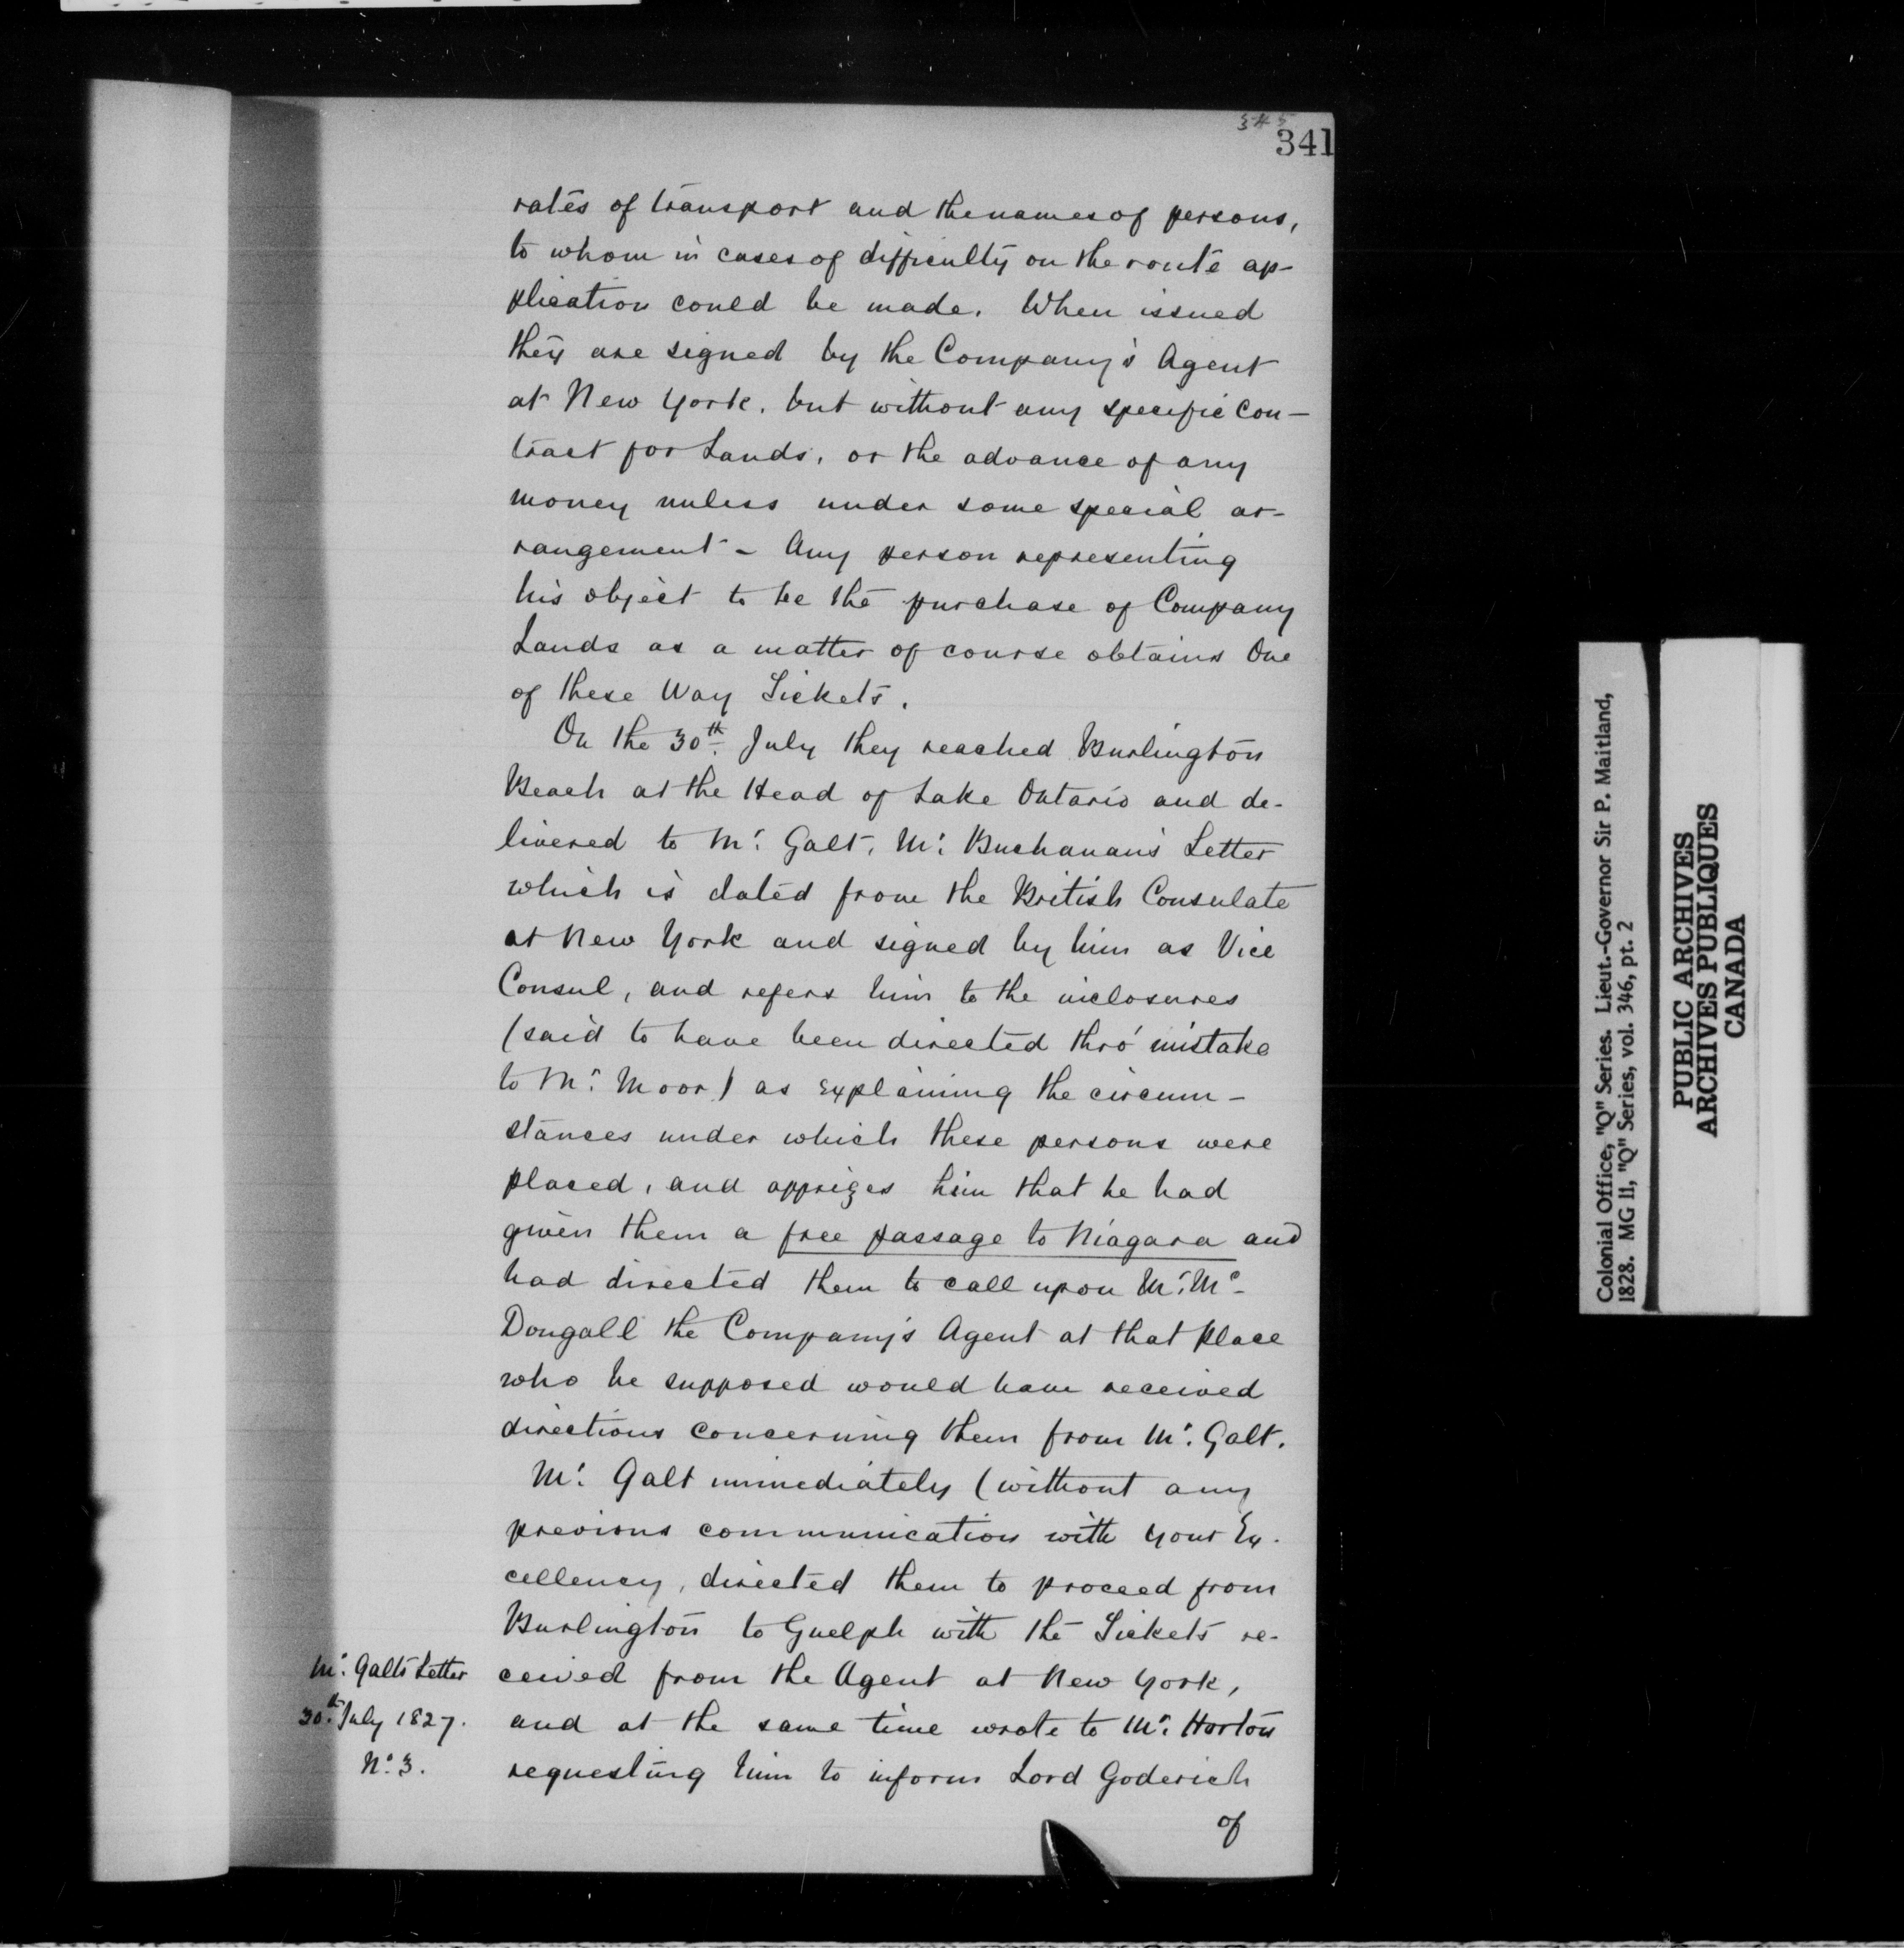 345
341
rates of transport and the names of persons,
to whom in cases of difficulty on the route ap-
plication could be made. When issued
they are signed by the Company's Agent
at New York, but without any specific con-
tract for Lands, or the advance of any
money unless under some special ar-
rangement - Any person representing
his object to be the purchase of Company
Lands as a matter of course obtains One
of these Way Tickets.
On the 30th July they reached Burlington
Beach at the Head of Lake Ontario and de-
livered to Mr. Galt, Mr. Buchanan's Letter
which is dated from the British Consulate
at New York and signed by him as Vice
Consul, and refers him to the inclosures
(said to have been directed thro' mistake
to Mr. Moor) as explaining the circum-
stances under which these persons were
placed, and apprizes him that he had
given them a free passage to Niagara and
had directed them to call upon Mr. Mc-
Dougall the Company's Agent at that place
who he supposed would have received
directions concerning them from Mr. Galt.
Mr. Galt immediately (without any
previous communication with your Ex-
cellency, directed them to proceed from
Burlington to Guelph with the Tickets re-
Mr. Galts Letter
30th July 1827.
No. 3.
ceived from the Agent at New York,
and at the same time wrote to Mr. Horton
requesting him to inform Lord Goderich
of
Colonial Office, "Q" Series. Lieut.-Governor Sir P. Maitland,
1828. MG 11, "Q" Series, vol. 346, pt. 2
PUBLIC ARCHIVES
ARCHIVES PUBLIQUES
CANADA